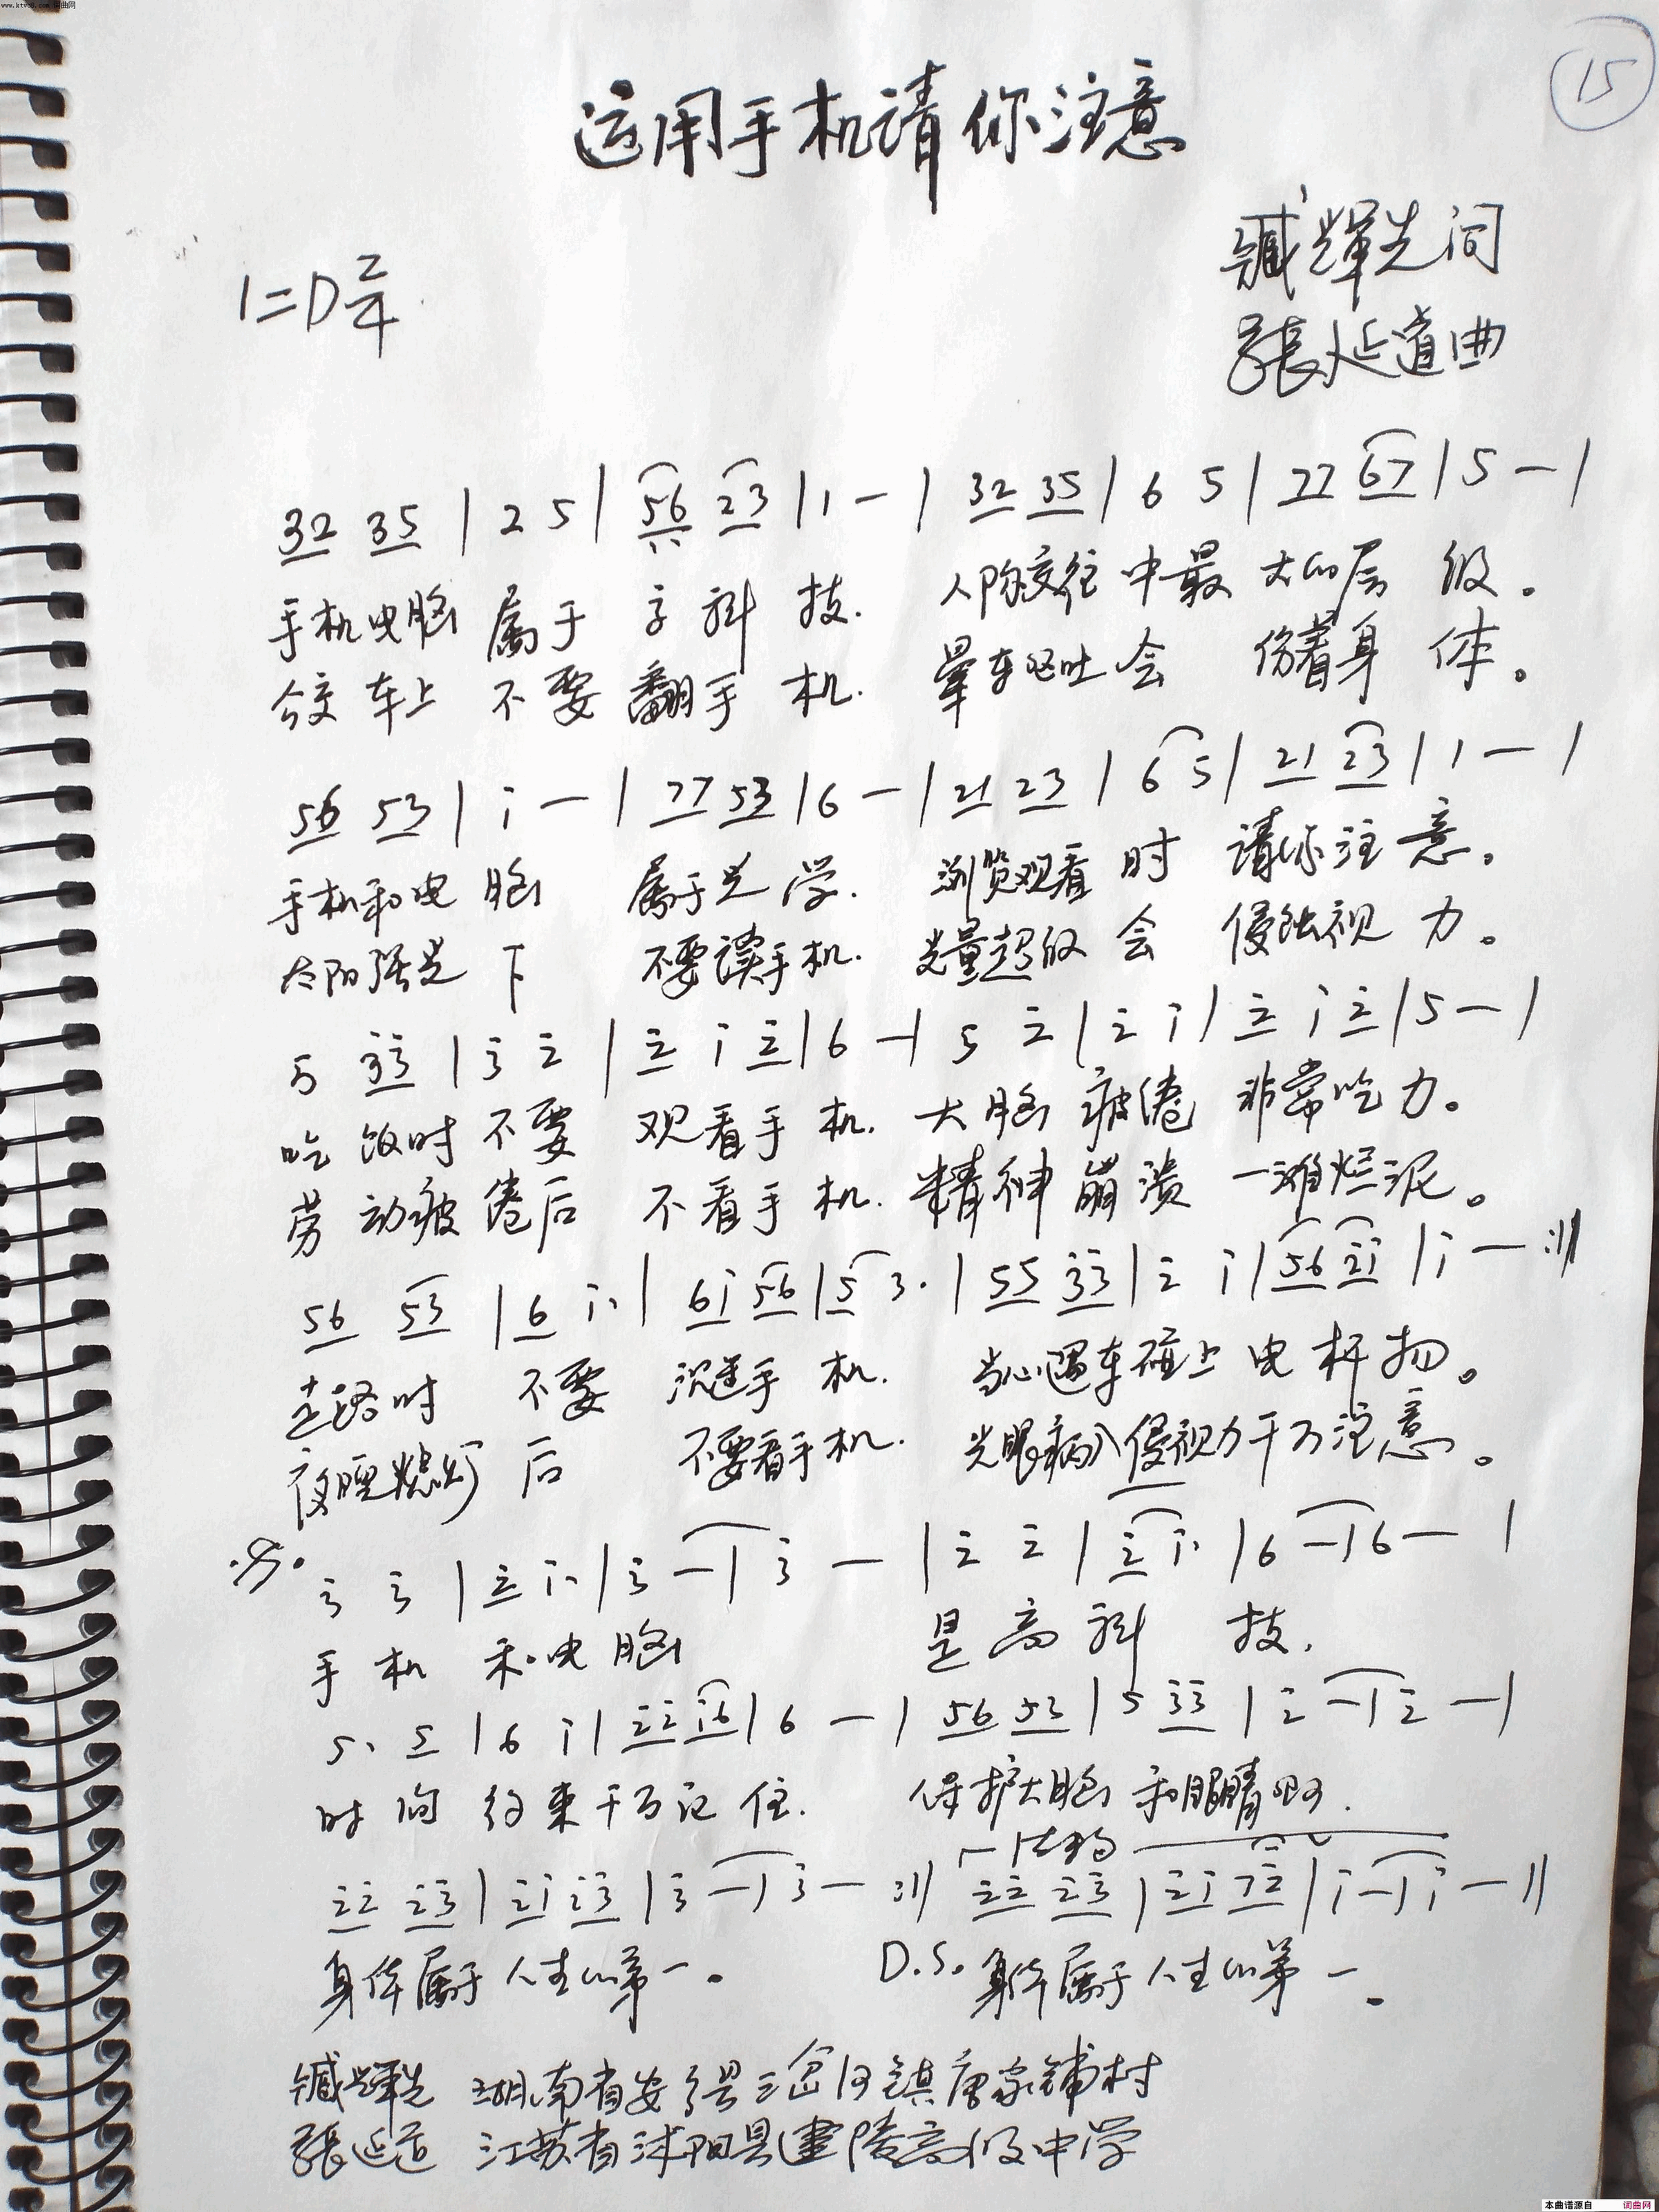 www.ktvc8.com 词曲网
15
运用手机请你注意
臧辉先词
1=D 2/4
張延道曲
32 35 | 2 5 | 56 23 | 1 — | 32 35 | 6 5 | 77 67 | 5 — |
手机电脑 属于 高科 技. 人际交往 中最 大的层 级。
公交车上 不要 翻手 机. 晕车呕吐 会 伤着身 体。
56 53 | i — | 77 53 | 6 — | 21 23 | 6 5 | 21 23 | 1 — |
手机和电 脑 属于光 学. 浏览观看 时 请你注 意。
太阳强光 下 不要读手机. 光量超级 会 侵蚀视 力。
5 33 | 3 2 | 2 i 2 | 6 — | 5 2 | 2 i | 2 i 2 | 5 — |
吃 饭时 不要 观看手 机. 大脑 疲倦 非常吃 力。
劳 动疲 倦后 不看手 机. 精神 崩溃 一滩烂泥。
56 53 | 6 i. | 6i 56 | 5 3. | 55 33 | 2 i | 56 2i | i — :||
走路时 不要 沉迷手 机. 当心遇车碰上 电杆 物。
夜晚熄灯 后 不要看手机. 光眼病入侵视力千万注意。
3 3 | 2 i. | 3 — | 3 — | 2 2 | 2 i. | 6 — | 6 — |
手 机 和电 脑 是 高 科 技.
5. 5 | 6 i | 22 i6 | 6 — | 56 53 | 5 33 | 2 — | 2 — |
时 间 约束千万记 住. 保护大脑 和眼睛
结束句
22 23 | 2i 23 | 3 — | 3 — :|| 22 23 | 2i 72 | i — | i — ||
身体属于 人生的第一。 D.S. 身体属于 人生的第 一。
臧辉先 湖南省安乡县三岔河镇唐家铺村
張延道 江苏省沭阳县建陵高级中学
本曲谱源自 词曲网